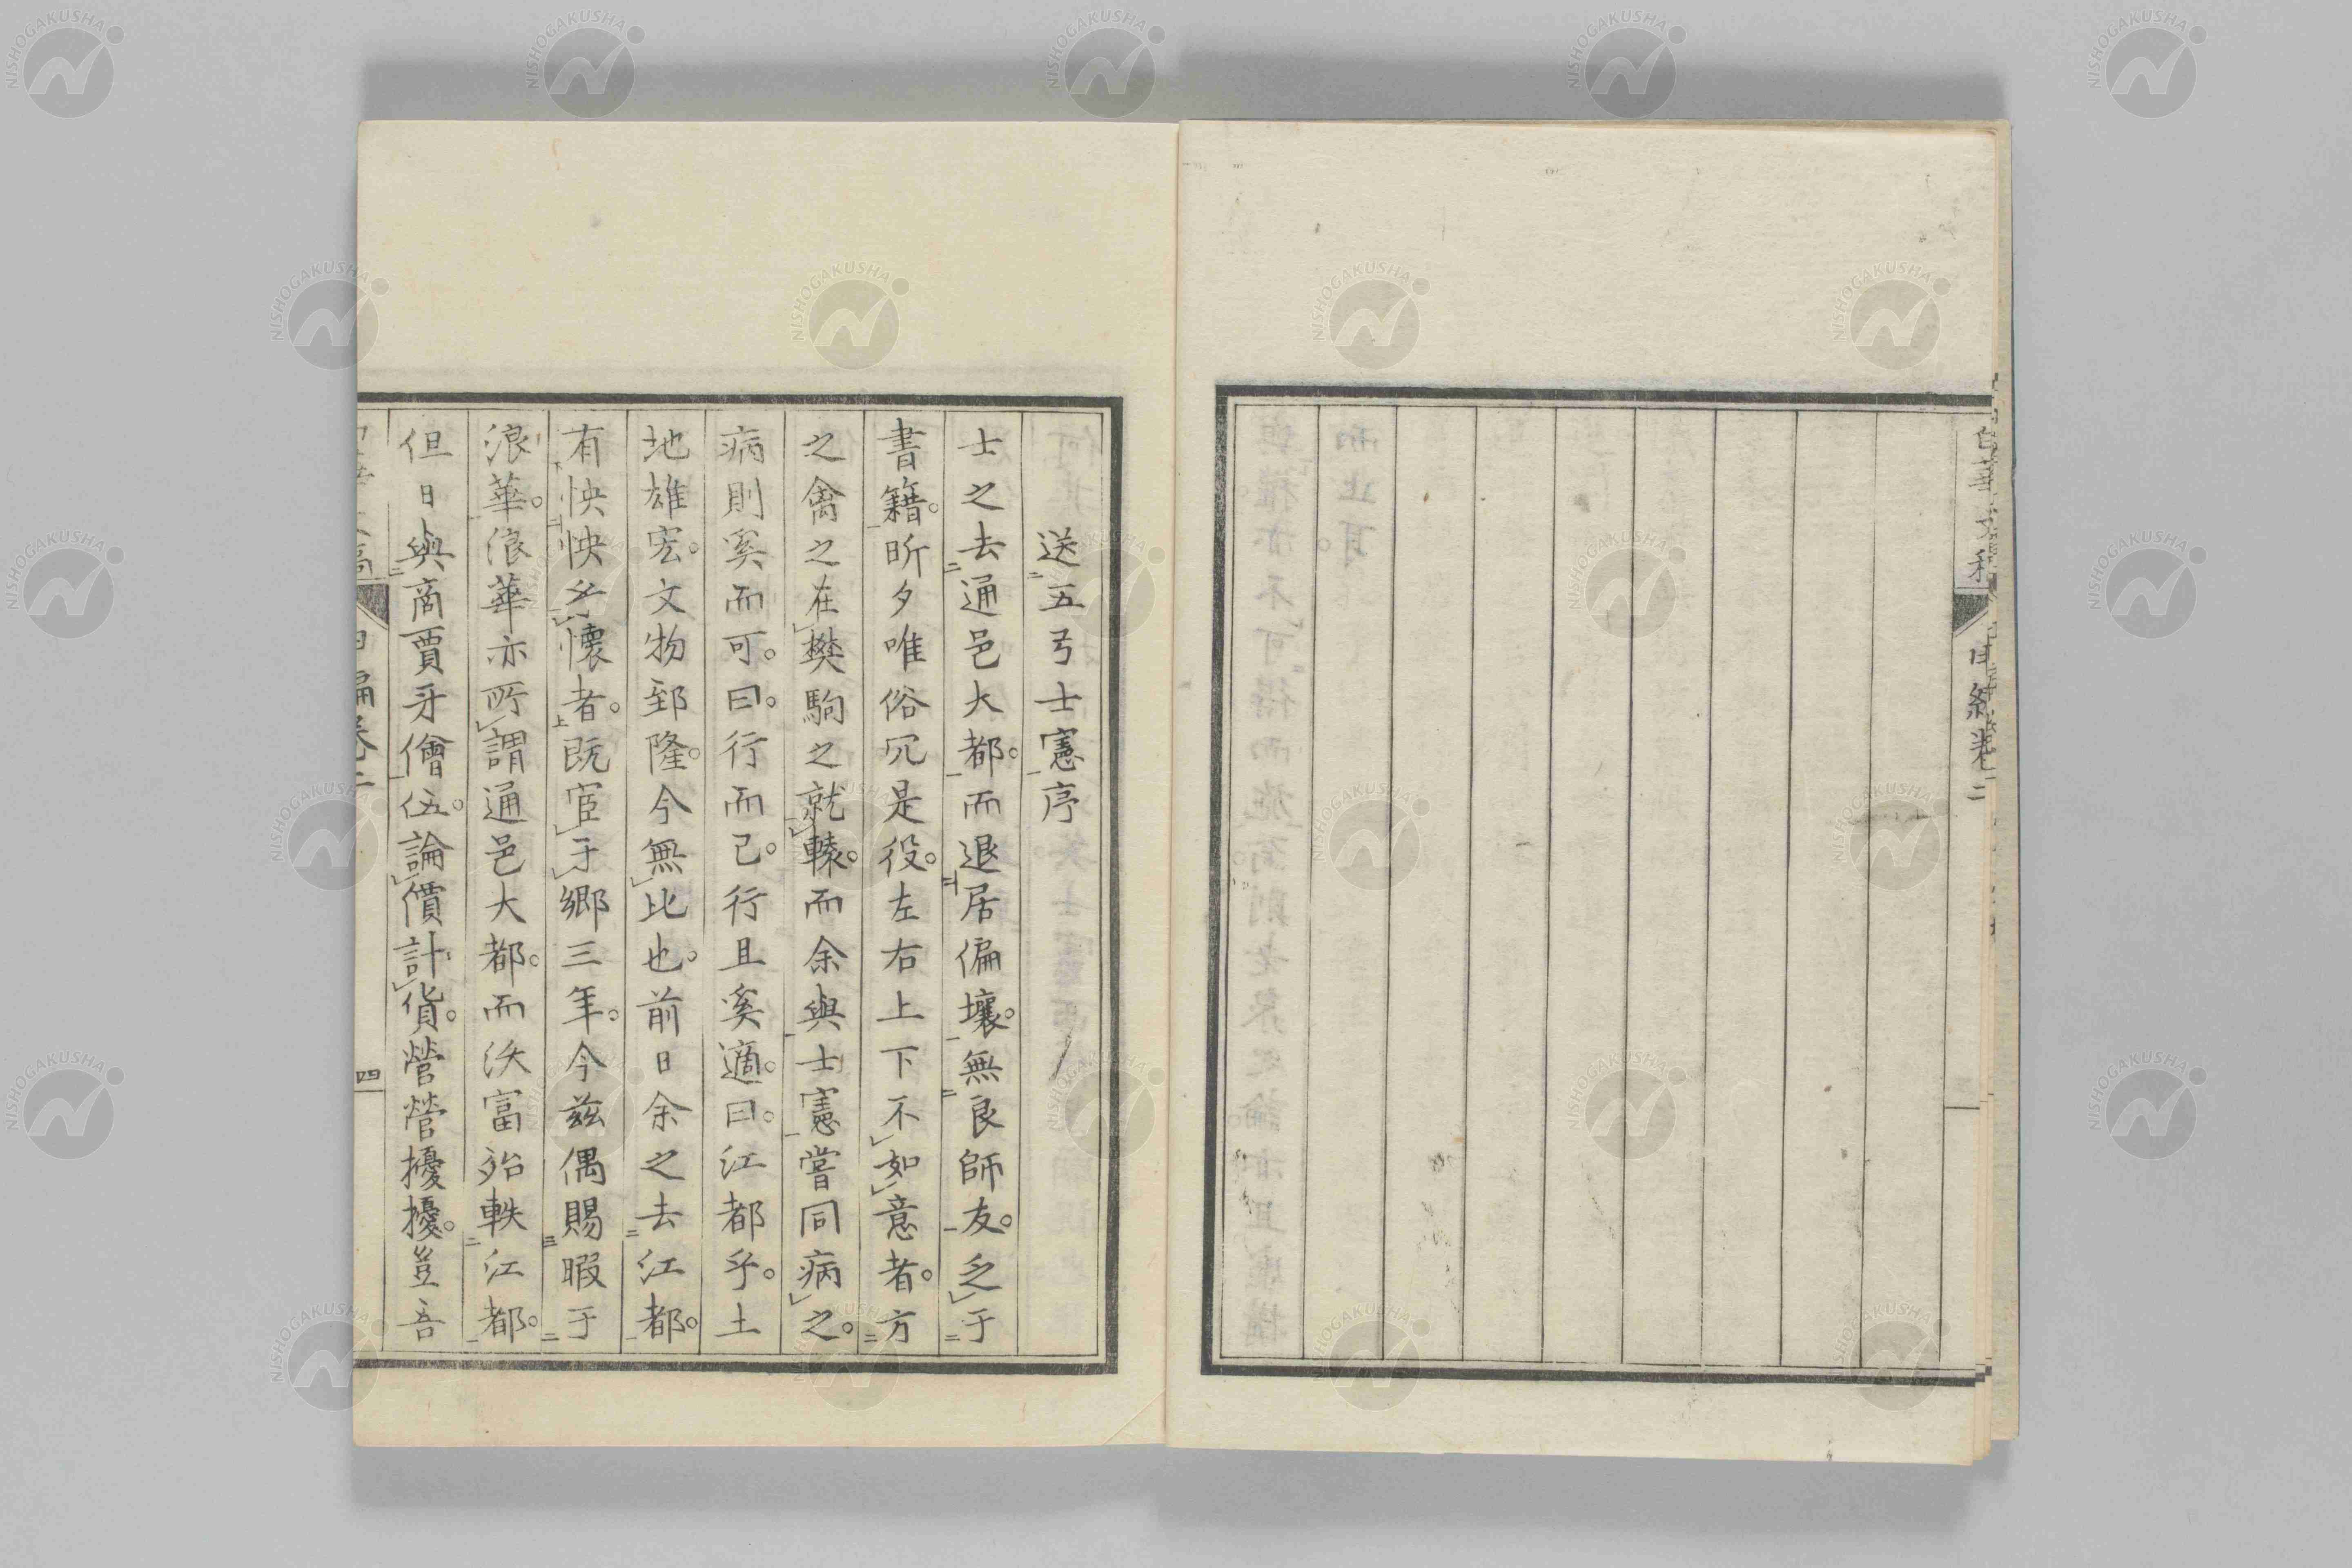 送五弓士憲序
士之去通邑大都。而退居偏壤。無良師友。乏于
書籍。昕夕唯俗冗是役。左右上下不如意者。方
之禽之在樊駒之就轅。而余與士憲嘗同病之。
病則奚而可。曰。行而已。行且奚適。曰。江都乎。土
地雄宏。文物郅隆。今無比也。前日余之去江都。
有怏怏乎懷者。既宦于鄉三年。今茲偶賜暇于
浪華。浪華亦所謂通邑大都。而沃富殆軼江都。
但日與商賈牙儈伍。論價計貨。營營擾擾。豈吾
四
NISHOGAKUSHA